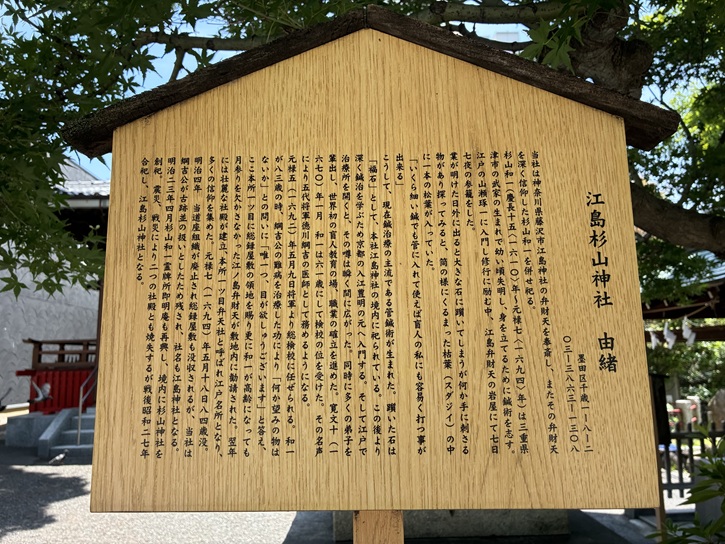 江島杉山神社　由緒
墨田区千歳一ー八ー二
〇三ー三八六三ー一三〇八
当社は神奈川県藤沢市江島神社の弁財天を奉斎し、またその弁財天
を深く信仰した杉山和一を併せ祀る。
杉山和一（慶長十五（一六一〇）年～元禄七（一六九四）年）は三重県
津市の武家の生まれで幼い頃失明し、身を立てるために鍼術を志す。
江戸の山瀬琢一に入門し修行に励む中、江島弁財天の岩屋にて七日
七夜の参籠をした。
業が明けた日外に出ると大きな石に躓いてしまうが何か手に刺さる
物があり探ってみると、筒の様にくるまった枯葉（スダジイ）の中
に一本の松葉が入っていた。
「いくら細い鍼でも管に入れて使えば盲人の私にも容易く打つ事が
出来る」
こうして、現在鍼治療の主流である管鍼術が生まれた。躓いた石は
「福石」として、本社江島神社の境内に祀られている。この後より
深く鍼治を学ぶため京都の入江豊明の元へ入門する。そして江戸で
治療所を開くと、その噂は瞬く間に広がった。同時に多くの弟子を
輩出し、世界初の盲人教育の場、職業の確立を進めた。寛文十（一
六七〇）年一月　和一は六一歳にして検校の位を受けた。その名声
により五代将軍徳川綱吉の医師として務めるようになる。
元禄五（一六九二）年五月九日将軍より総検校に任ぜられる。和一
が八三歳の時、綱吉公の難病を治療した功により「何か望みの物は
ないか」との問いに「唯一つ、目が欲しゅうございます」と答え、
ここ本所一ツ目に総録屋敷の領地を賜り更に和一が高齢になっても
月参りを欠かさなかった江ノ島弁財天が敷地内に勧請された。翌年
には壮麗な社殿が建立、本所一ツ目弁天社と呼ばれ江戸名所となり、
多くの信仰を集めた。元禄七（一六九四）年五月十八日八四歳没。
明治四年　当道座組織が廃止され総録屋敷も没収されるが、当社は
綱吉公が古跡並の扱いとしたため残され、社名も江島神社となる。
明治二三年四月杉山和一霊牌所即明庵も再興し、境内に杉山神社を
創祀。震災、戦災により二つの社殿とも焼失するが戦後昭和二七年
合祀し、江島杉山神社となる。